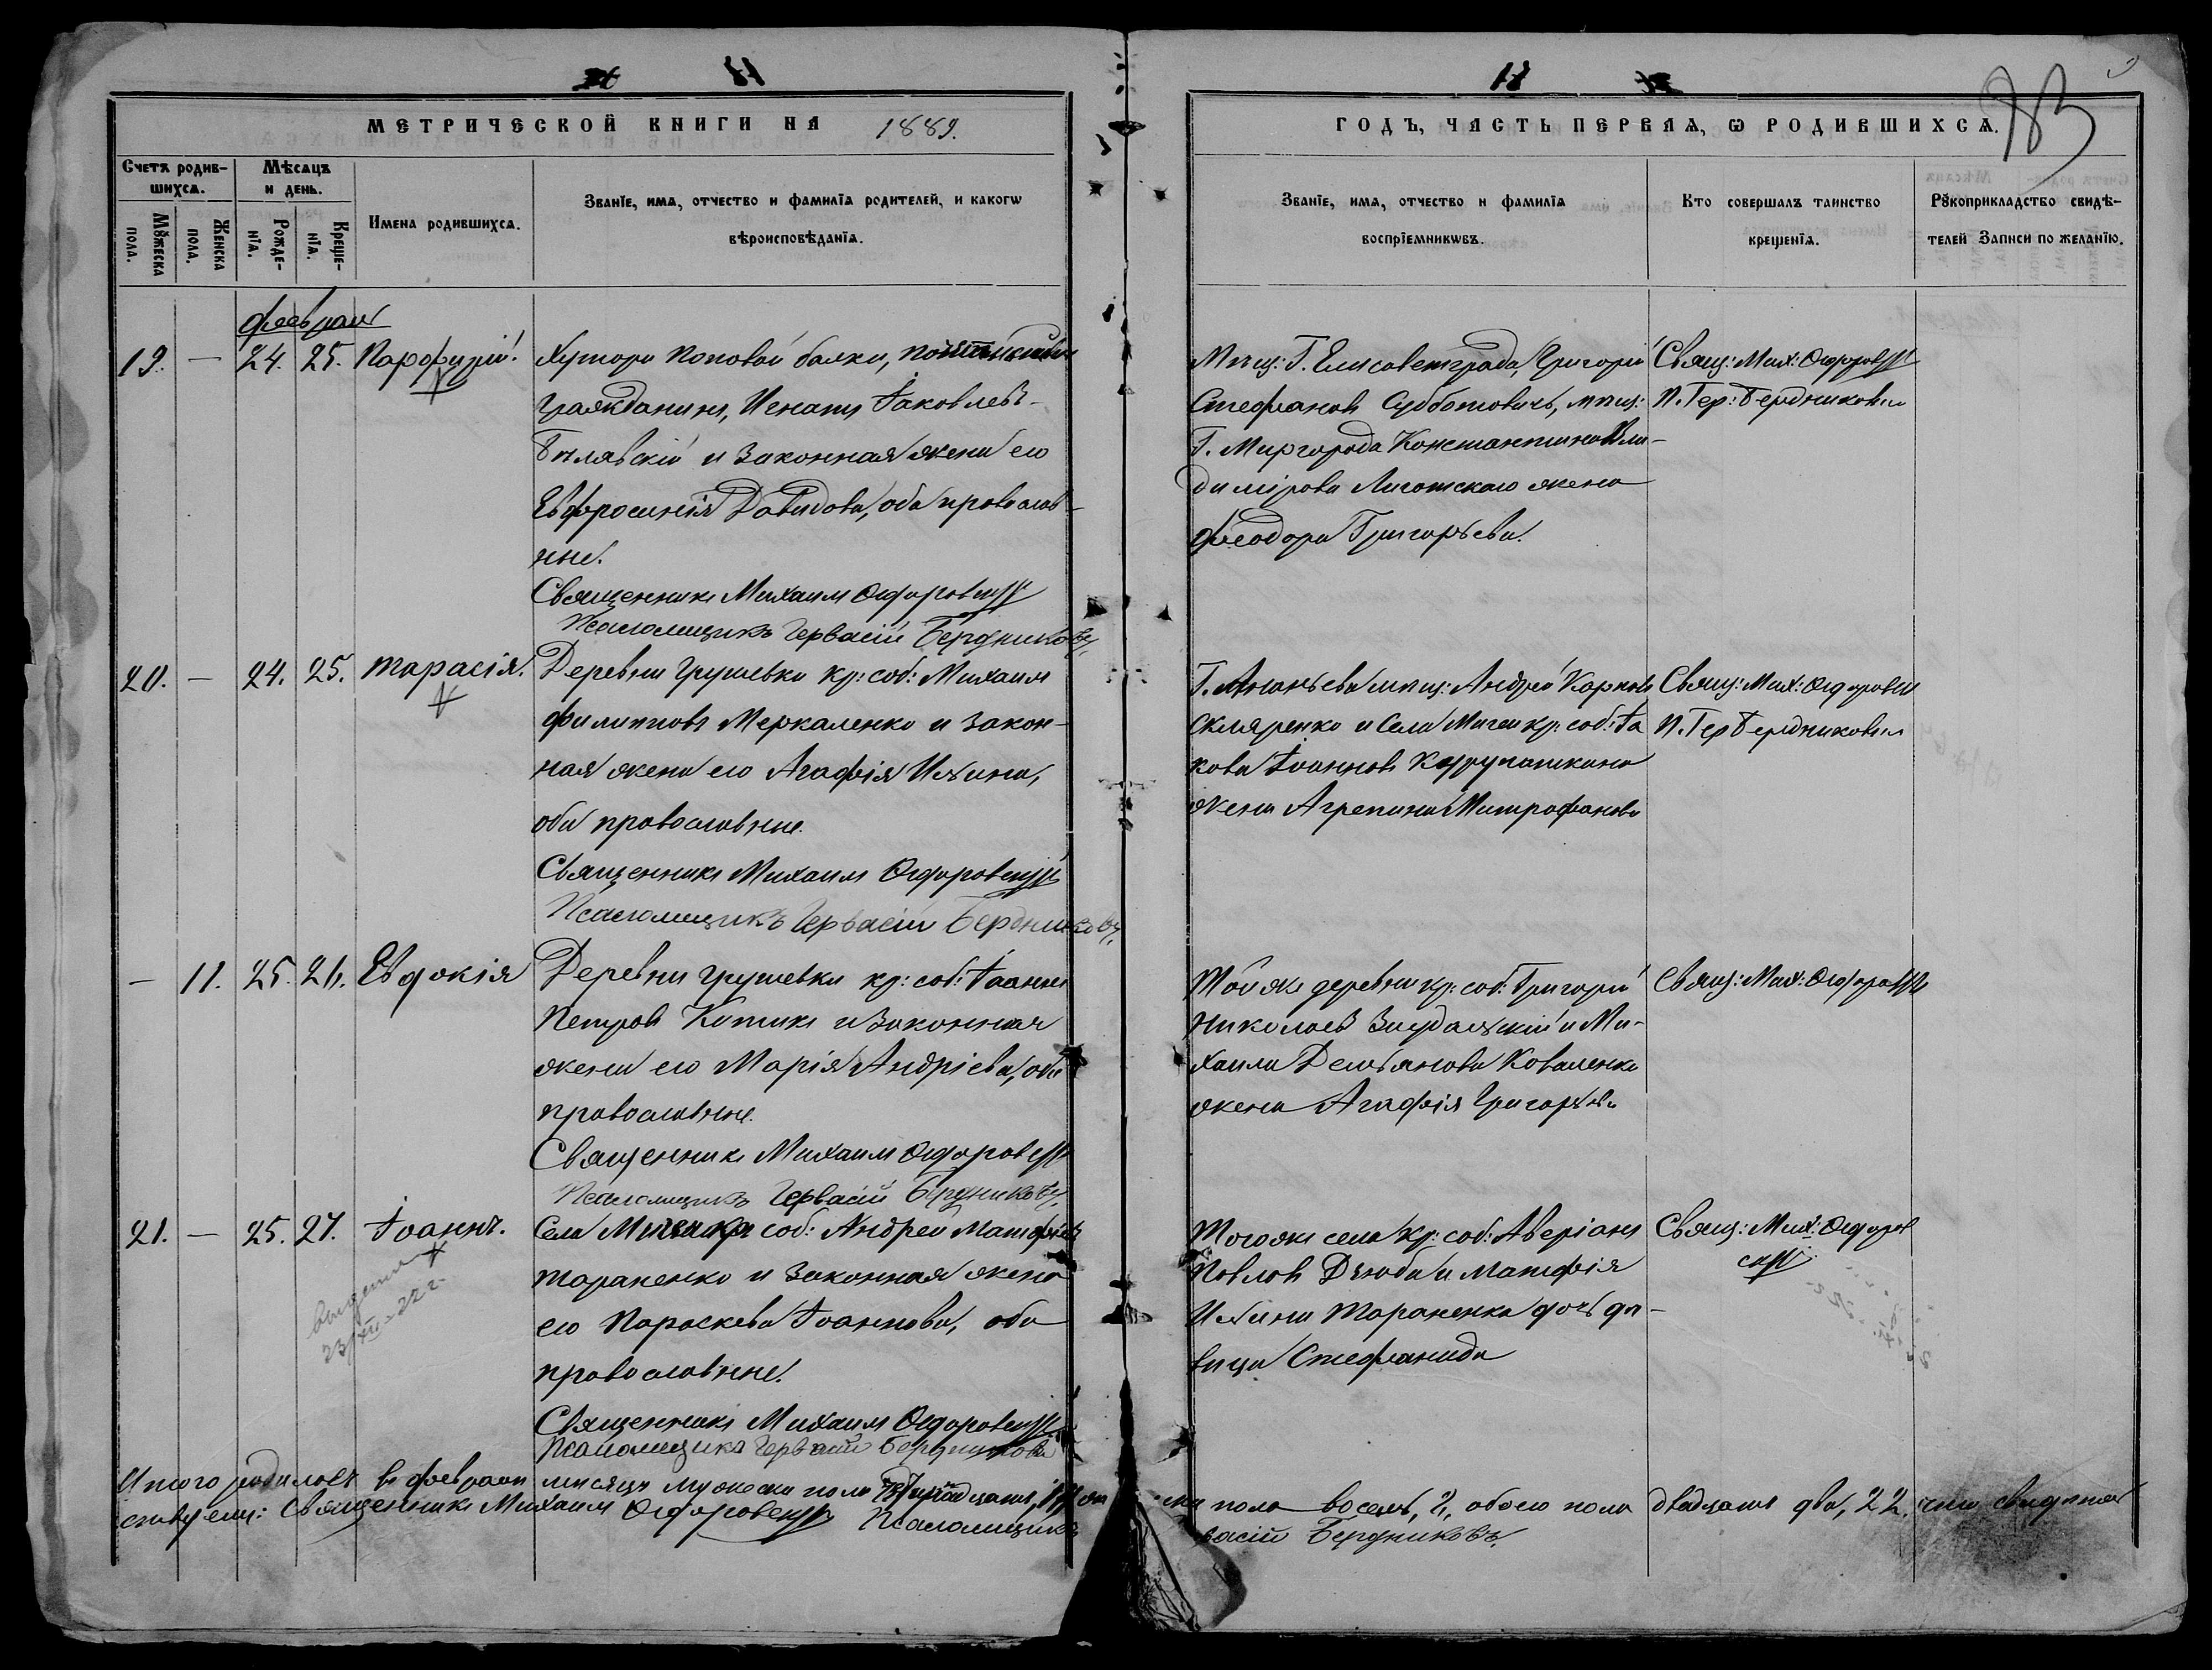 11
18
83
МЕТРИЧЕСКОЙ КНИГИ НА 1889.
ГОДЪ, ЧАСТЬ ПЕРВАѦ, Ѡ РОДИВШИХСѦ.
Счетъ родив-
шихсѧ.
Мѹжеска пола.
Женска пола.
Мѣсѧцъ
и день.
Рожде-
нїѧ.
Креще-
нїѧ.
Имена родившихсѧ.
Званїе, имѧ, отчество и фамилїѧ родителей, и какогѡ
вѣроисповѣданїѧ.
Званїе, имѧ, отчество и фамилїѧ
воспрїемникѡвъ.
Кто совершалъ таинство
крещенїѧ.
Рѹкоприкладство свидѣ-
телей записи по желанїю.
февраль
19. — 24. 25. Парфирій.
Хутора Поповой балки,
гражданинъ, Игнатъ Іаковлевъ
Бѣлявскій и законная жена его
Евфросинія Давидова, оба православ-
ные.
Священникъ Михаилъ
Псаломщикъ Гервасій Бердниковъ.
Мѣщ: Г. Елисаветграда, Григорій
Стефановъ Субботовичъ, мѣщ:
Г. Миргорода Константина Вла-
димірова жена
Феодора Григорьева.
Свящ: Мих:
П. Гер: Бердниковъ
20. — 24. 25. Тарасій.
Деревни Грушевки кр: соб: Михаилъ
Филипповъ Меркаленко и закон-
ная жена его Агафія Ильина,
оба православные.
Священникъ Михаилъ
Псаломщикъ Гервасій Бердниковъ.
Г. Ананьева мѣщ: Андрей Карповъ
Скляренко и села Мигеи кр: соб: Іа
кова Іоаннова
жена Агрепина Митрофанова
Свящ: Мих:
П. Гер Бердниковъ
— 11. 25. 26. Евдокія
Деревни Грушевки кр: соб: Іоаннъ
Петровъ Китикъ и законная
жена его Марія Андріева, оба
православные.
Священникъ Михаилъ
Псаломщикъ Гервасій Бердниковъ.
Той же деревни кр: соб: Григорій
Николаевъ и Ми-
хаила Демьянова Коваленка
жена Агафія Григорьева
Свящ: Мих:
21. — 25. 27. Іоаннъ.
23/XII-22 г.
Села Мигеи кр: соб: Андрей Матфіевъ
Тараненко и законная жена
его Параскева Іоаннова, оба
православные.
Священникъ Михаилъ
Псаломщикъ Гервасій Бердниковъ
Того же села кр: соб: Аверіанъ
Павловъ Дзюба и Матфія
Ильина Тараненка дочь дѣ-
вица Стефанида
Свящ: Мих:
Итого родилось въ февралѣ мѣсяцѣ мужеска пола
пола восемь, 8, обоего пола двадцать два, 22, чемъ свидѣтель
ствуемъ: Священникъ Михаилъ Псаломщикъ
васій Бердниковъ.